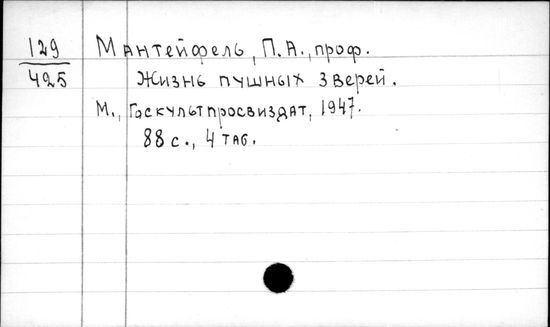 129 Мантейфель, П.А., проф.
425 Жизнь пушных зверей.
М., Госкультпросвиздат, 1947.
88 с., 4 таб.